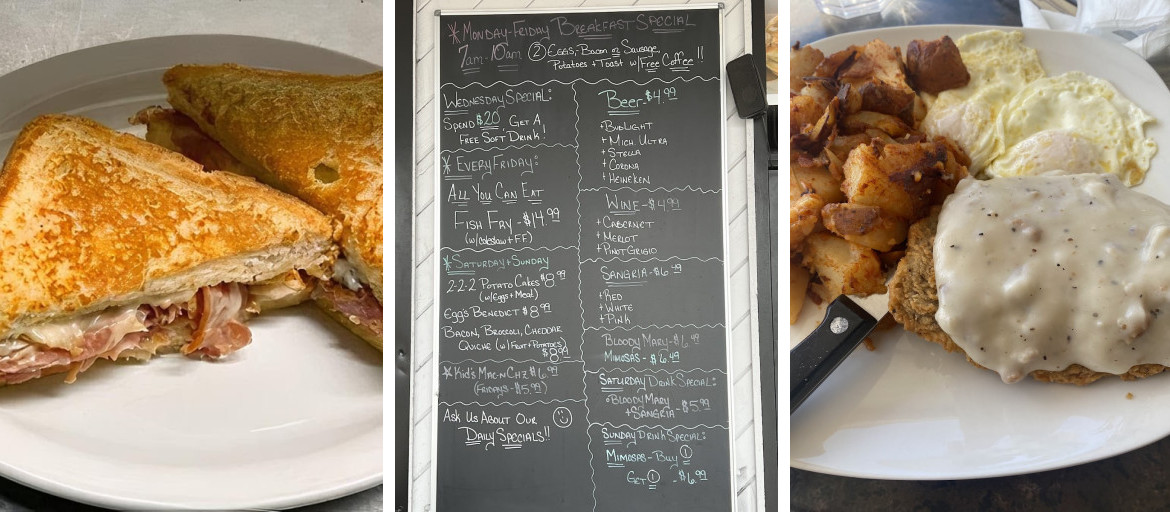 * Monday-Friday Breakfast Special
7am-10am (2) Eggs,-Bacon or Sausage,
Potatoes + Toast w/Free Coffee!!
Wednesday Special:
Spend $20, Get A
Free Soft Drink!
* Every Friday:
All You Can Eat
Fish Fry - $14.99
(w/coleslaw + FF)
* Saturday + Sunday
2-2-2 Potato Cakes $8.99
(w/Eggs + Meat)
Eggs Benedict $8.99
Bacon, Broccoli, Cheddar
Quiche (w/Fruit + Potatoes)
$8.99
* Kid's Mac-n-Chz $6.99
(Fridays - $5.99)
Ask Us About Our
Daily Specials!!
Beer - $4.99
+ Bud Light
+ Mich. Ultra
+ Stella
+ Corona
+ Heineken
Wine - $4.99
+ Cabernet
+ Merlot
+ Pinot Grigio
Sangria - $6.49
+ Red
+ White
+ Pink
Bloody Mary - $6.49
Mimosas - $6.49
Saturday Drink Special:
+ Bloody Mary
+ Sangria - $5.99
Sunday Drink Special:
Mimosas - Buy (1)
Get (1) - $6.99